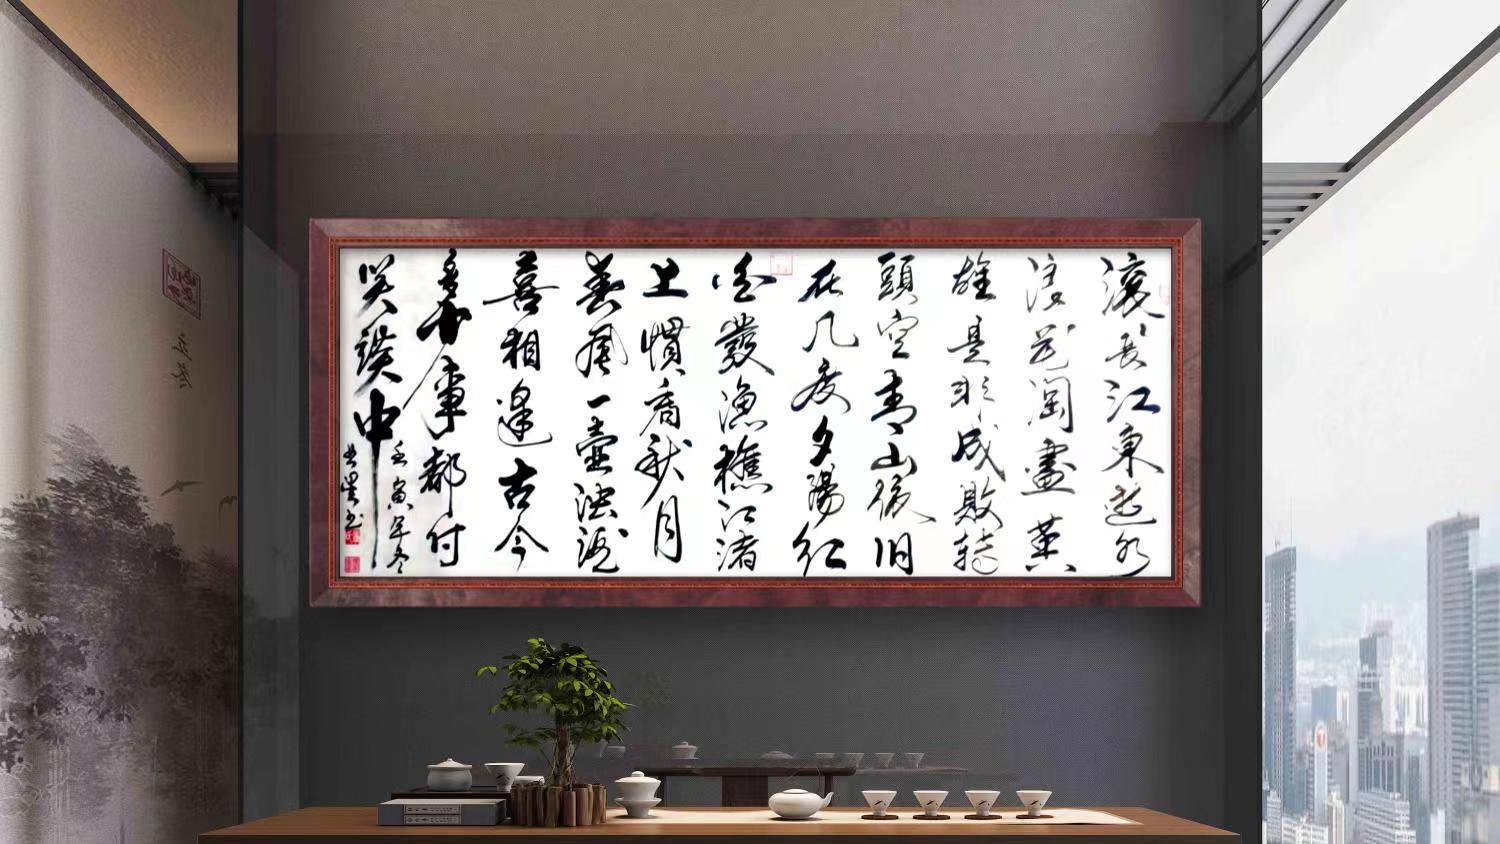 滚滚長江東逝水
浪花淘盡英
雄是非成敗轉
頭空青山依旧
在几度夕陽红
白發漁樵江渚
上慣看秋月
春風一壶浊酒
喜相逢古今
多少事都付
笑談中
壬寅年冬
立冬